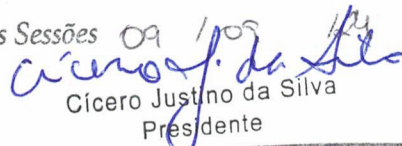 s Sessões 09 / 09 /
Cícero J. da Silva
Cícero Justino da Silva
Presidente